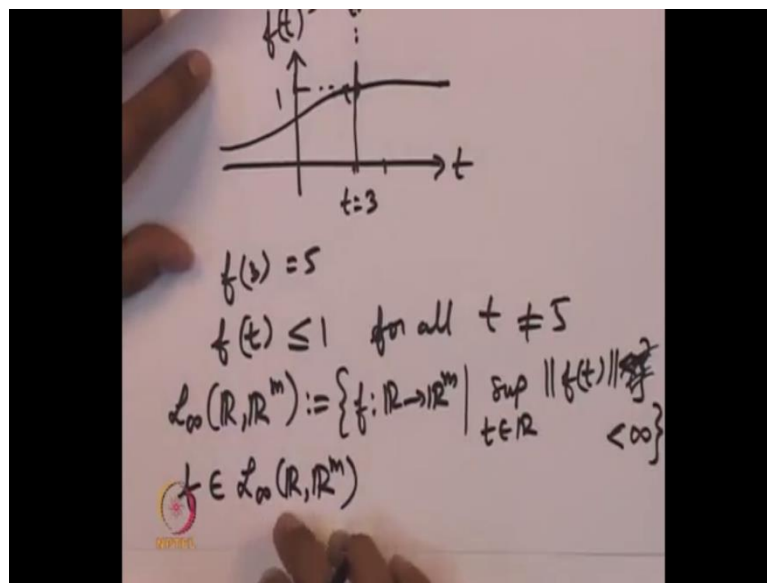 f(t)
1
t
t=3
f(3) = 5
f(t) ≤ 1 for all t ≠ 5
L∞(R, R^m) := { f: R→R^m | sup_{t∈R} ||f(t)|| < ∞ }
f ∈ L∞(R, R^m)
NPTEL